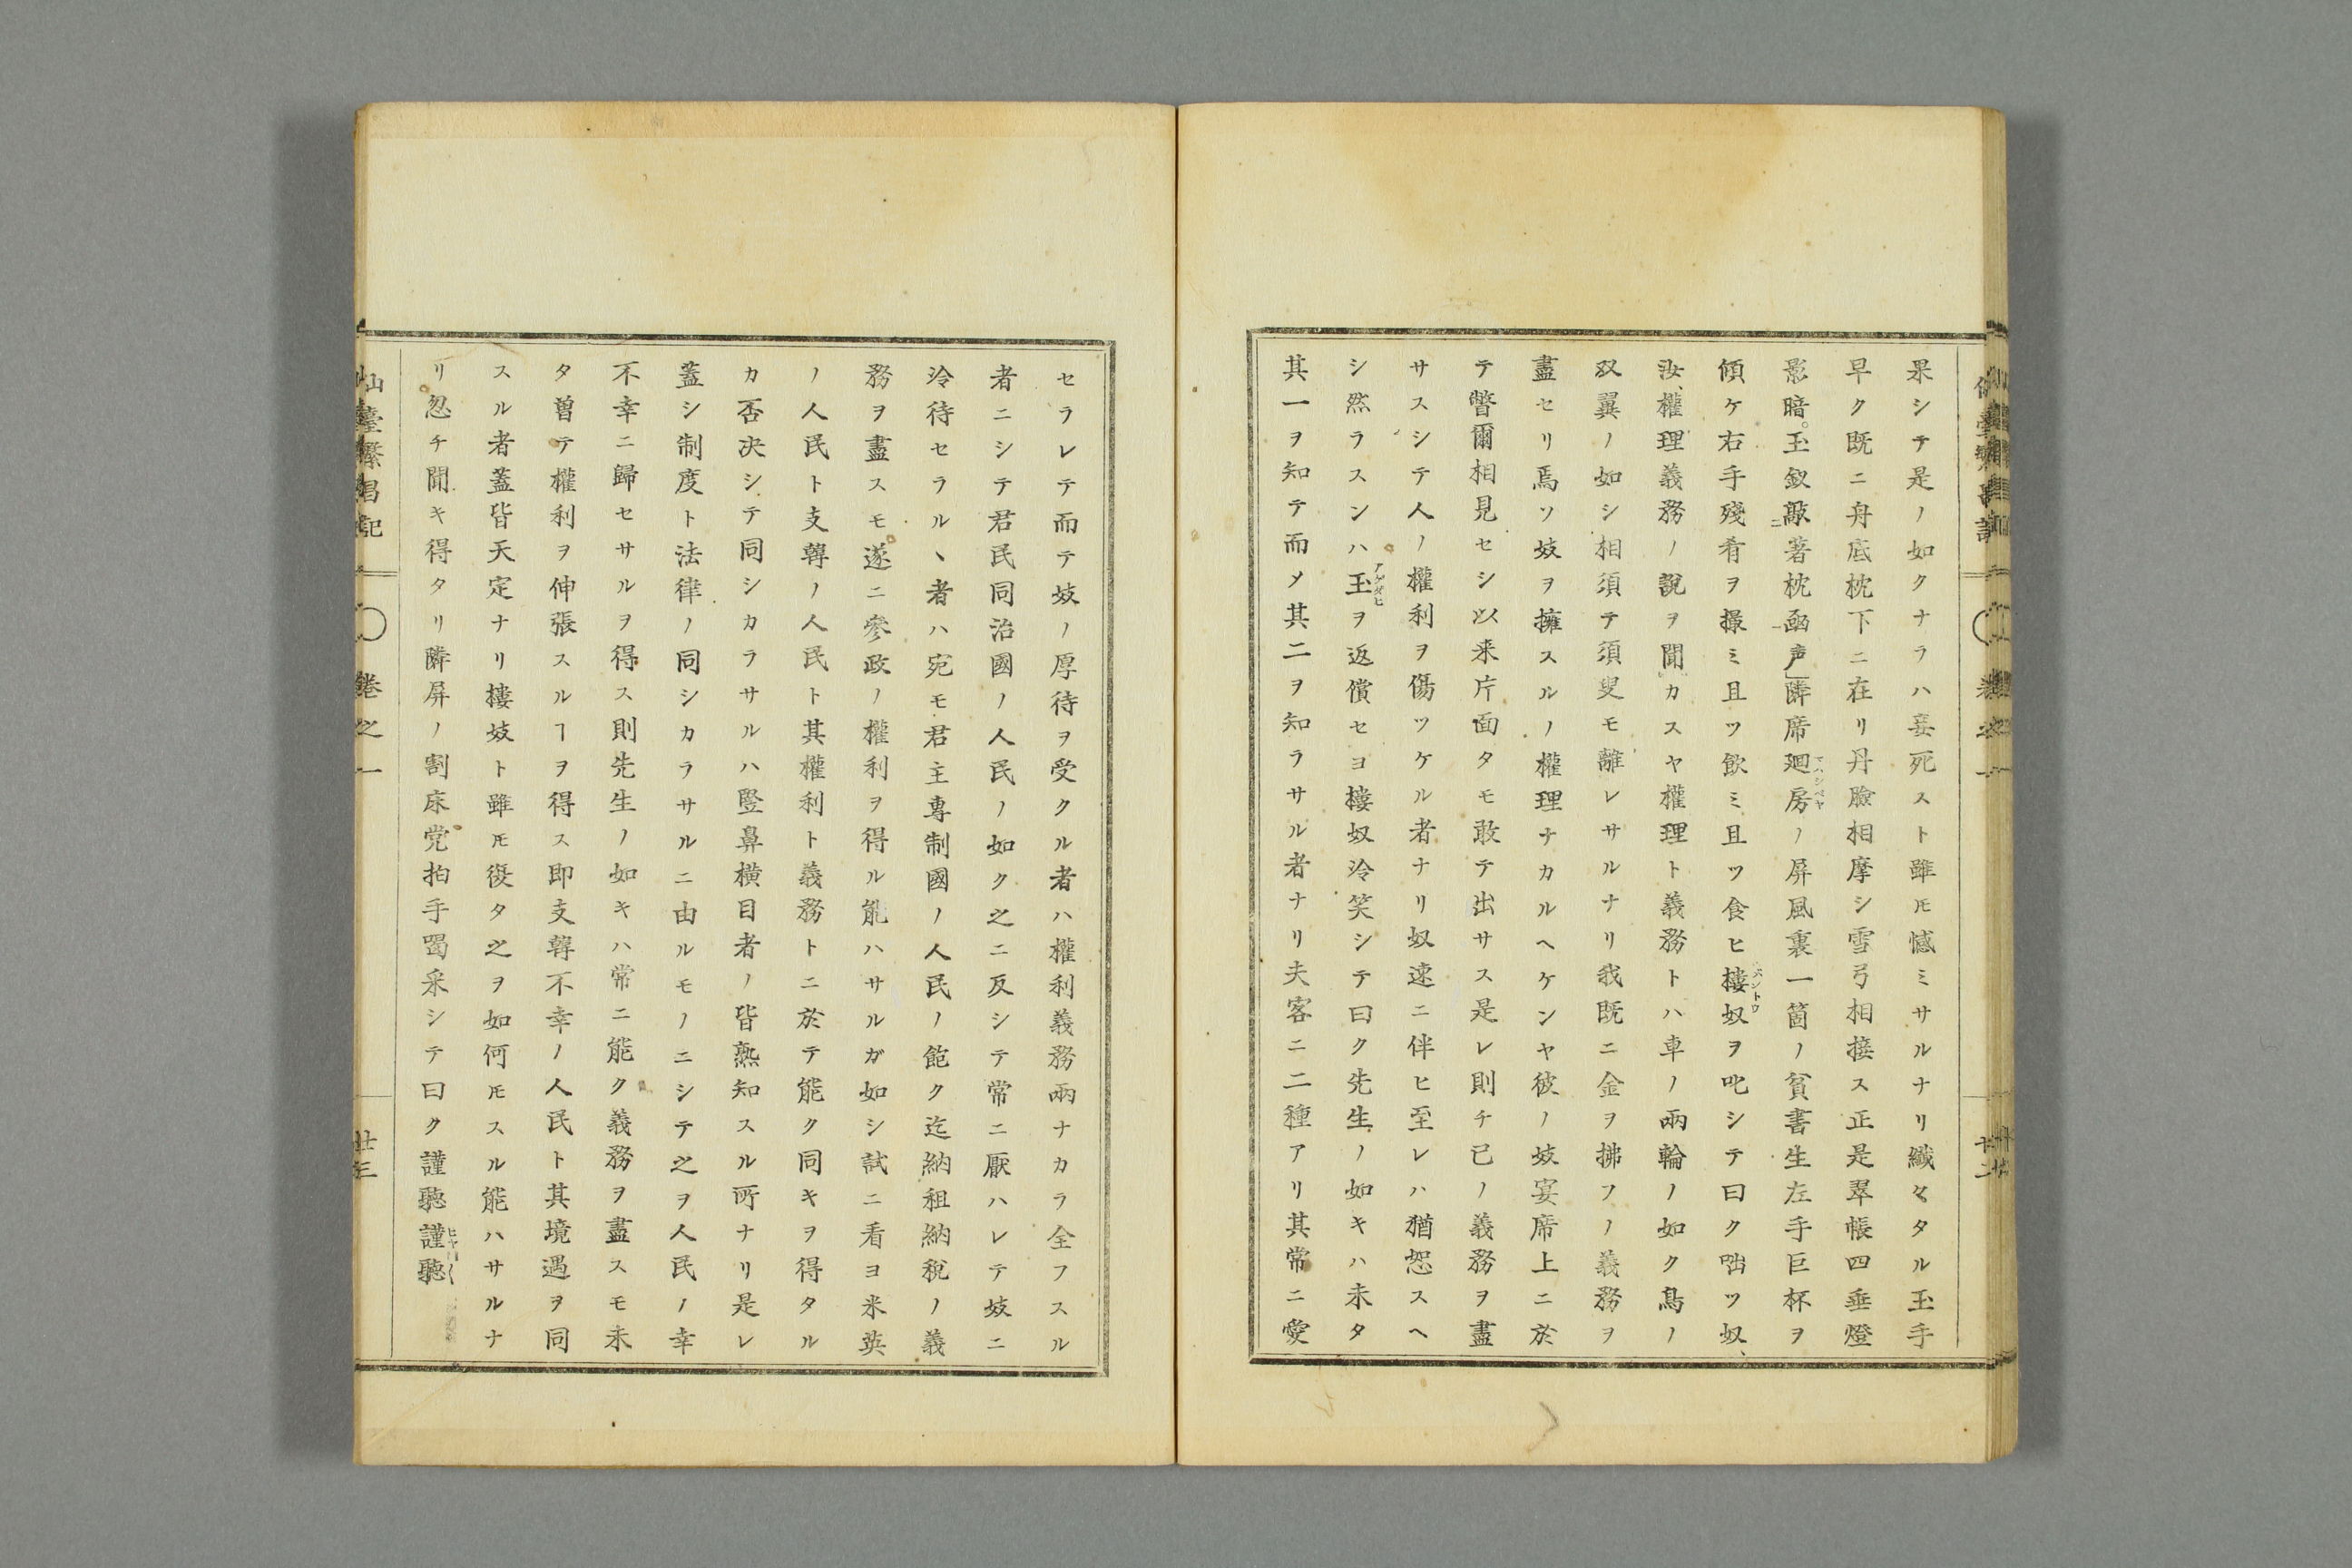 果シテ是ノ如クナラハ妄死スト雖𪜈憾ミサルナリ纖々タル玉手
早ク既ニ舟底枕下ニ在リ丹臉相摩シ雪弓相接ス正是翠帳四垂燈
影暗。玉釵敲著枕函声」隣席廻房ノ屏風裏一箇ノ貧書生左手巨杯ヲ
傾ケ右手殘肴ヲ撮ミ且ツ飲ミ且ツ食ヒ樓奴ヲ叱シテ曰ク咄ツ奴、
汝、權理義務ノ說ヲ聞カスヤ權理ト義務トハ車ノ兩輪ノ如ク鳥ノ
双翼ノ如シ相須テ須叟モ離レサルナリ我既ニ金ヲ拂フノ義務ヲ
盡セリ焉ソ妓ヲ擁スルノ權理ナカルヘケンヤ彼ノ妓宴席上ニ於
テ瞥爾相見セシ以来片面タモ敢テ出サス是レ則チ已ノ義務ヲ盡
サスシテ人ノ權利ヲ傷ツケル者ナリ奴速ニ伴ヒ至レハ猶恕スヘ
シ然ラスンハ玉ヲ返償セヨ樓奴冷笑シテ曰ク先生ノ如キハ未タ
其一ヲ知テ而メ其二ヲ知ラサル者ナリ夫客ニ二種アリ其常ニ愛
セラレテ而テ妓ノ厚待ヲ受クル者ハ權利義務兩ナカラ全フスル
者ニシテ君民同治國ノ人民ノ如ク之ニ反シテ常ニ厭ハレテ妓ニ
冷待セラルヽ者ハ宛モ君主專制國ノ人民ノ飽ク迄納租納稅ノ義
務ヲ盡スモ遂ニ參政ノ權利ヲ得ル能ハサルガ如シ試ニ看ヨ米英
ノ人民ト支韓ノ人民ト其權利ト義務トニ於テ能ク同キヲ得タル
カ否决シテ同シカラサルハ竪鼻横目者ノ皆熟知スル所ナリ是レ
蓋シ制度ト法律ノ同シカラサルニ由ルモノニシテ之ヲ人民ノ幸
不幸ニ歸セサルヲ得ス則先生ノ如キハ常ニ能ク義務ヲ盡スモ未
タ曽テ權利ヲ伸張スルヿヲ得ス即支韓不幸ノ人民ト其境遇ヲ同
スル者蓋皆天定ナリ樓妓ト雖𪜈復タ之ヲ如何𪜈スル能ハサルナ
リ忽チ聞キ得タリ隣屏ノ割床党拍手喝采シテ曰ク謹聽謹聽
仙臺繁昌記 巻之一 廿三